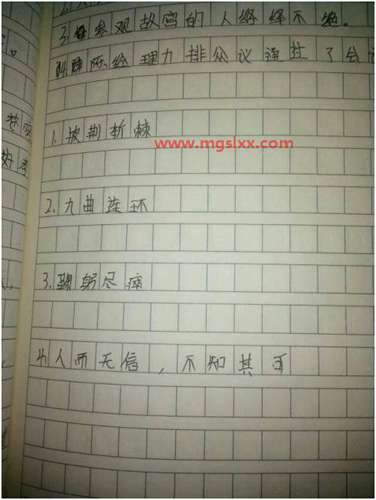 3.参观故宫的人络绎不绝。
陈总理力排众议通过了会
1.披荆折棘
www.mgslxx.com
2.九曲连环
3.鞠躬尽瘁
4.人而无信，不知其可